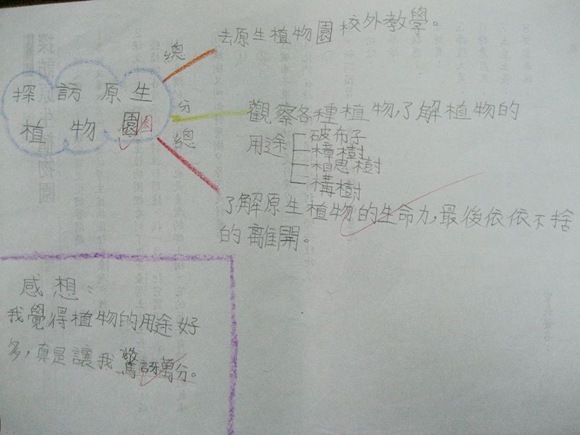 探訪原生
植物園
園
總
去原生植物園校外教學。
分
觀察各種植物,了解植物的
用途
破布子
樟樹
相思樹
構樹
總
了解原生植物的生命力,最後依依不捨
的離開。
感想:
我覺得植物的用途好
多,真是讓我驚訝萬分。